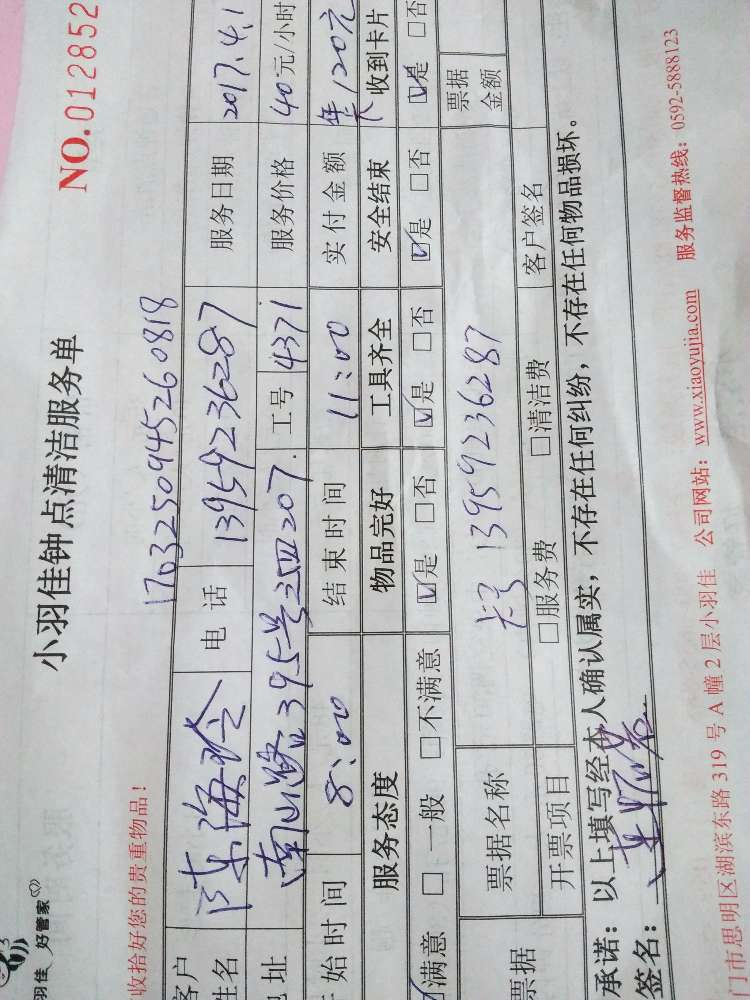 羽佳 好管家
小羽佳钟点清洁服务单
NO.012852
收拾好您的贵重物品!
17032509445260818
客户姓名 陈海玲 电话 13959236287 服务日期 2017.4.1
地址 南山路395号之四207. 工号 4371 服务价格 40元/小时
开始时间 8:00 结束时间 11:00 实付金额 120元
服务态度 物品完好 工具齐全 安全结束 收到卡片
☑满意 □一般 □不满意 ☑是 □否 ☑是 □否 ☑是 □否 ☑是 □否
票据 票据名称 卡号 13959236287 票据金额
开票项目 □服务费 □清洁费 客户签名
承诺：以上填写经本人确认属实，不存在任何纠纷，不存在任何物品损坏。
签名：
门市思明区湖滨东路 319 号 A 幢 2 层小羽佳 公司网站：www.xiaoyujia.com 服务监督热线：0592-5888123